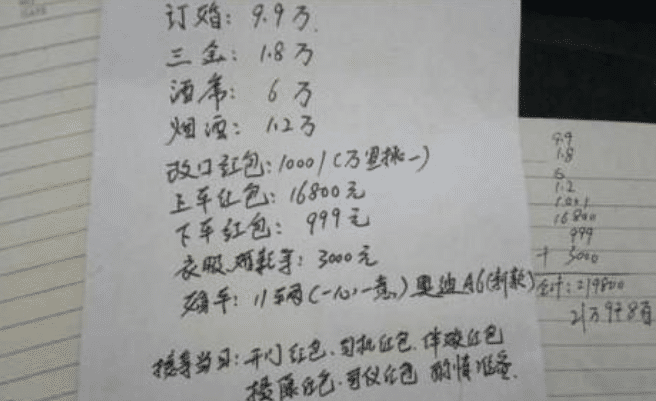 订婚：9.9万
三金：1.8万
酒席：6万
烟酒：1.2万
改口红包：10001（万里挑一）
上车红包：16800元
下车红包：999元
衣服、婚鞋等：3000元
婚车：11辆（一心一意）奥迪A6（新款）
接亲当日：开门红包、司机红包、伴娘红包
摄像红包、司仪红包 酌情准备.
9.9
1.8
6
1.2
1.001
16800
999
+ 3000
合计：219800
21万9千8百